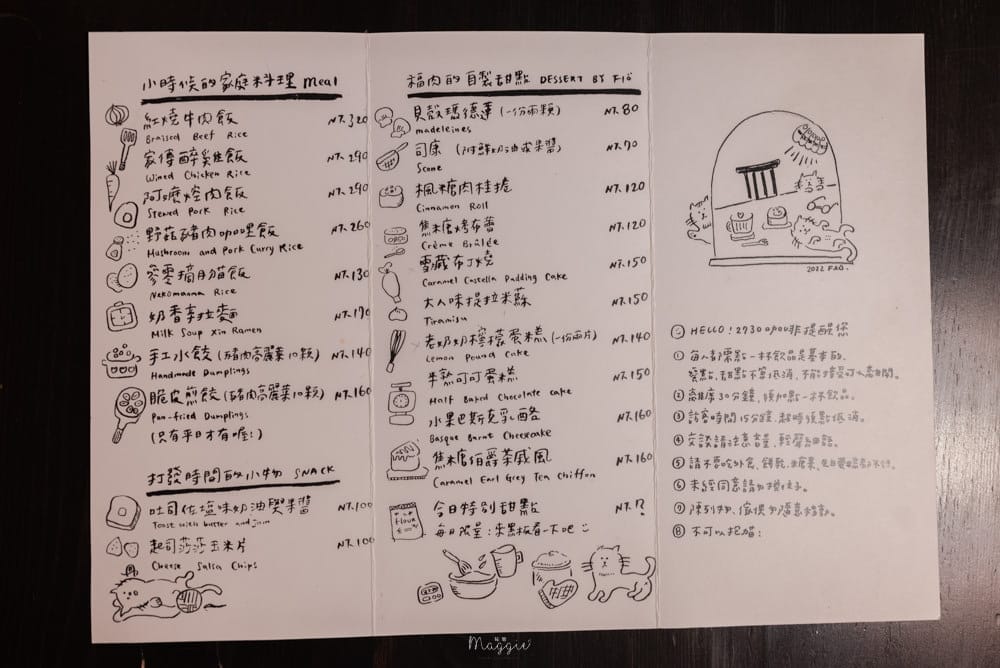 小時候的家庭料理 meal
紅燒牛肉飯 NT.320
Braised Beef Rice
家傳醉雞飯 NT.290
Wined Chicken Rice
阿嬤焢肉飯 NT.290
Stewed Pork Rice
野菇豬肉咖哩飯 NT.260
Mushroom and Pork Curry Rice
麥零摘月貓飯 NT.130
Nekomanma Rice
奶香辛拉麵 NT.170
Milk Soup Xin Ramen
手工水餃 (豬肉高麗菜10顆) NT.140
Handmade Dumplings
脆皮煎餃 (豬肉高麗菜10顆) NT.160
Pan-fried Dumplings
(只有平日才有喔!)
打發時間的小物 SNACK
吐司佐塩味奶油與果醬 NT.100
Toast with butter and jam
起司莎莎玉米片 NT.100
Cheese Salsa Chips
福肉的自製甜點 DESSERT BY FIO
貝殼瑪德蓮 (一份兩顆) NT.80
madeleines
司康 (附鮮奶油或果醬) NT.70
Scone
楓糖肉桂捲 NT.120
Cinnamon Roll
焦糖烤布蕾 NT.120
Crème Brûlée
雪藏布丁燒 NT.150
Caramel Castella Pudding Cake
大人味提拉米蘇 NT.150
Tiramisu
老奶奶檸檬蛋糕 (一份兩片) NT.140
Lemon Pound Cake
半熟可可蛋糕 NT.150
Half Baked Chocolate cake
水果巴斯克乳酪 NT.160
Basque Burnt Cheesecake
焦糖伯爵茶戚風 NT.160
Caramel Earl Grey Tea Chiffon
今日特別甜點 NT.!?
每日限量:來黑板看一下吧
Flour
2022 FAO.
HELLO! 2730 提醒您
① 每人都需點一杯飲品是基本的,
餐點、甜點不算低消,
② 離席30分鐘,須加點一杯飲品。
③ 訪客時間15分鐘,超時須點低消。
④ 交談請注意音量,輕聲細語。
⑤ 請不要吃外食、餅乾、糖果,
⑥ 未經同意請勿攪柱子。
⑦ 陳列物、傢俱勿隨意移動。
⑧ 不可以抱貓:
Maggie